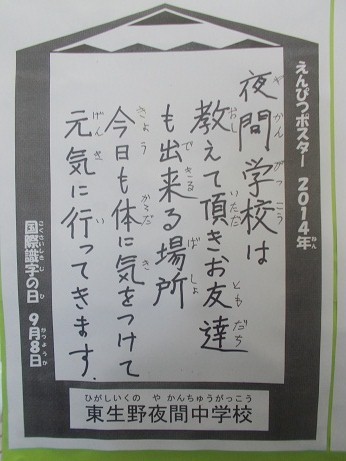 えんぴつポスター 2014年
夜間学校は
教えて頂きお友達
も出来る場所
今日も体に気をつけて
元気に行ってきます.
国際識字の日 9月8日
東生野夜間中学校